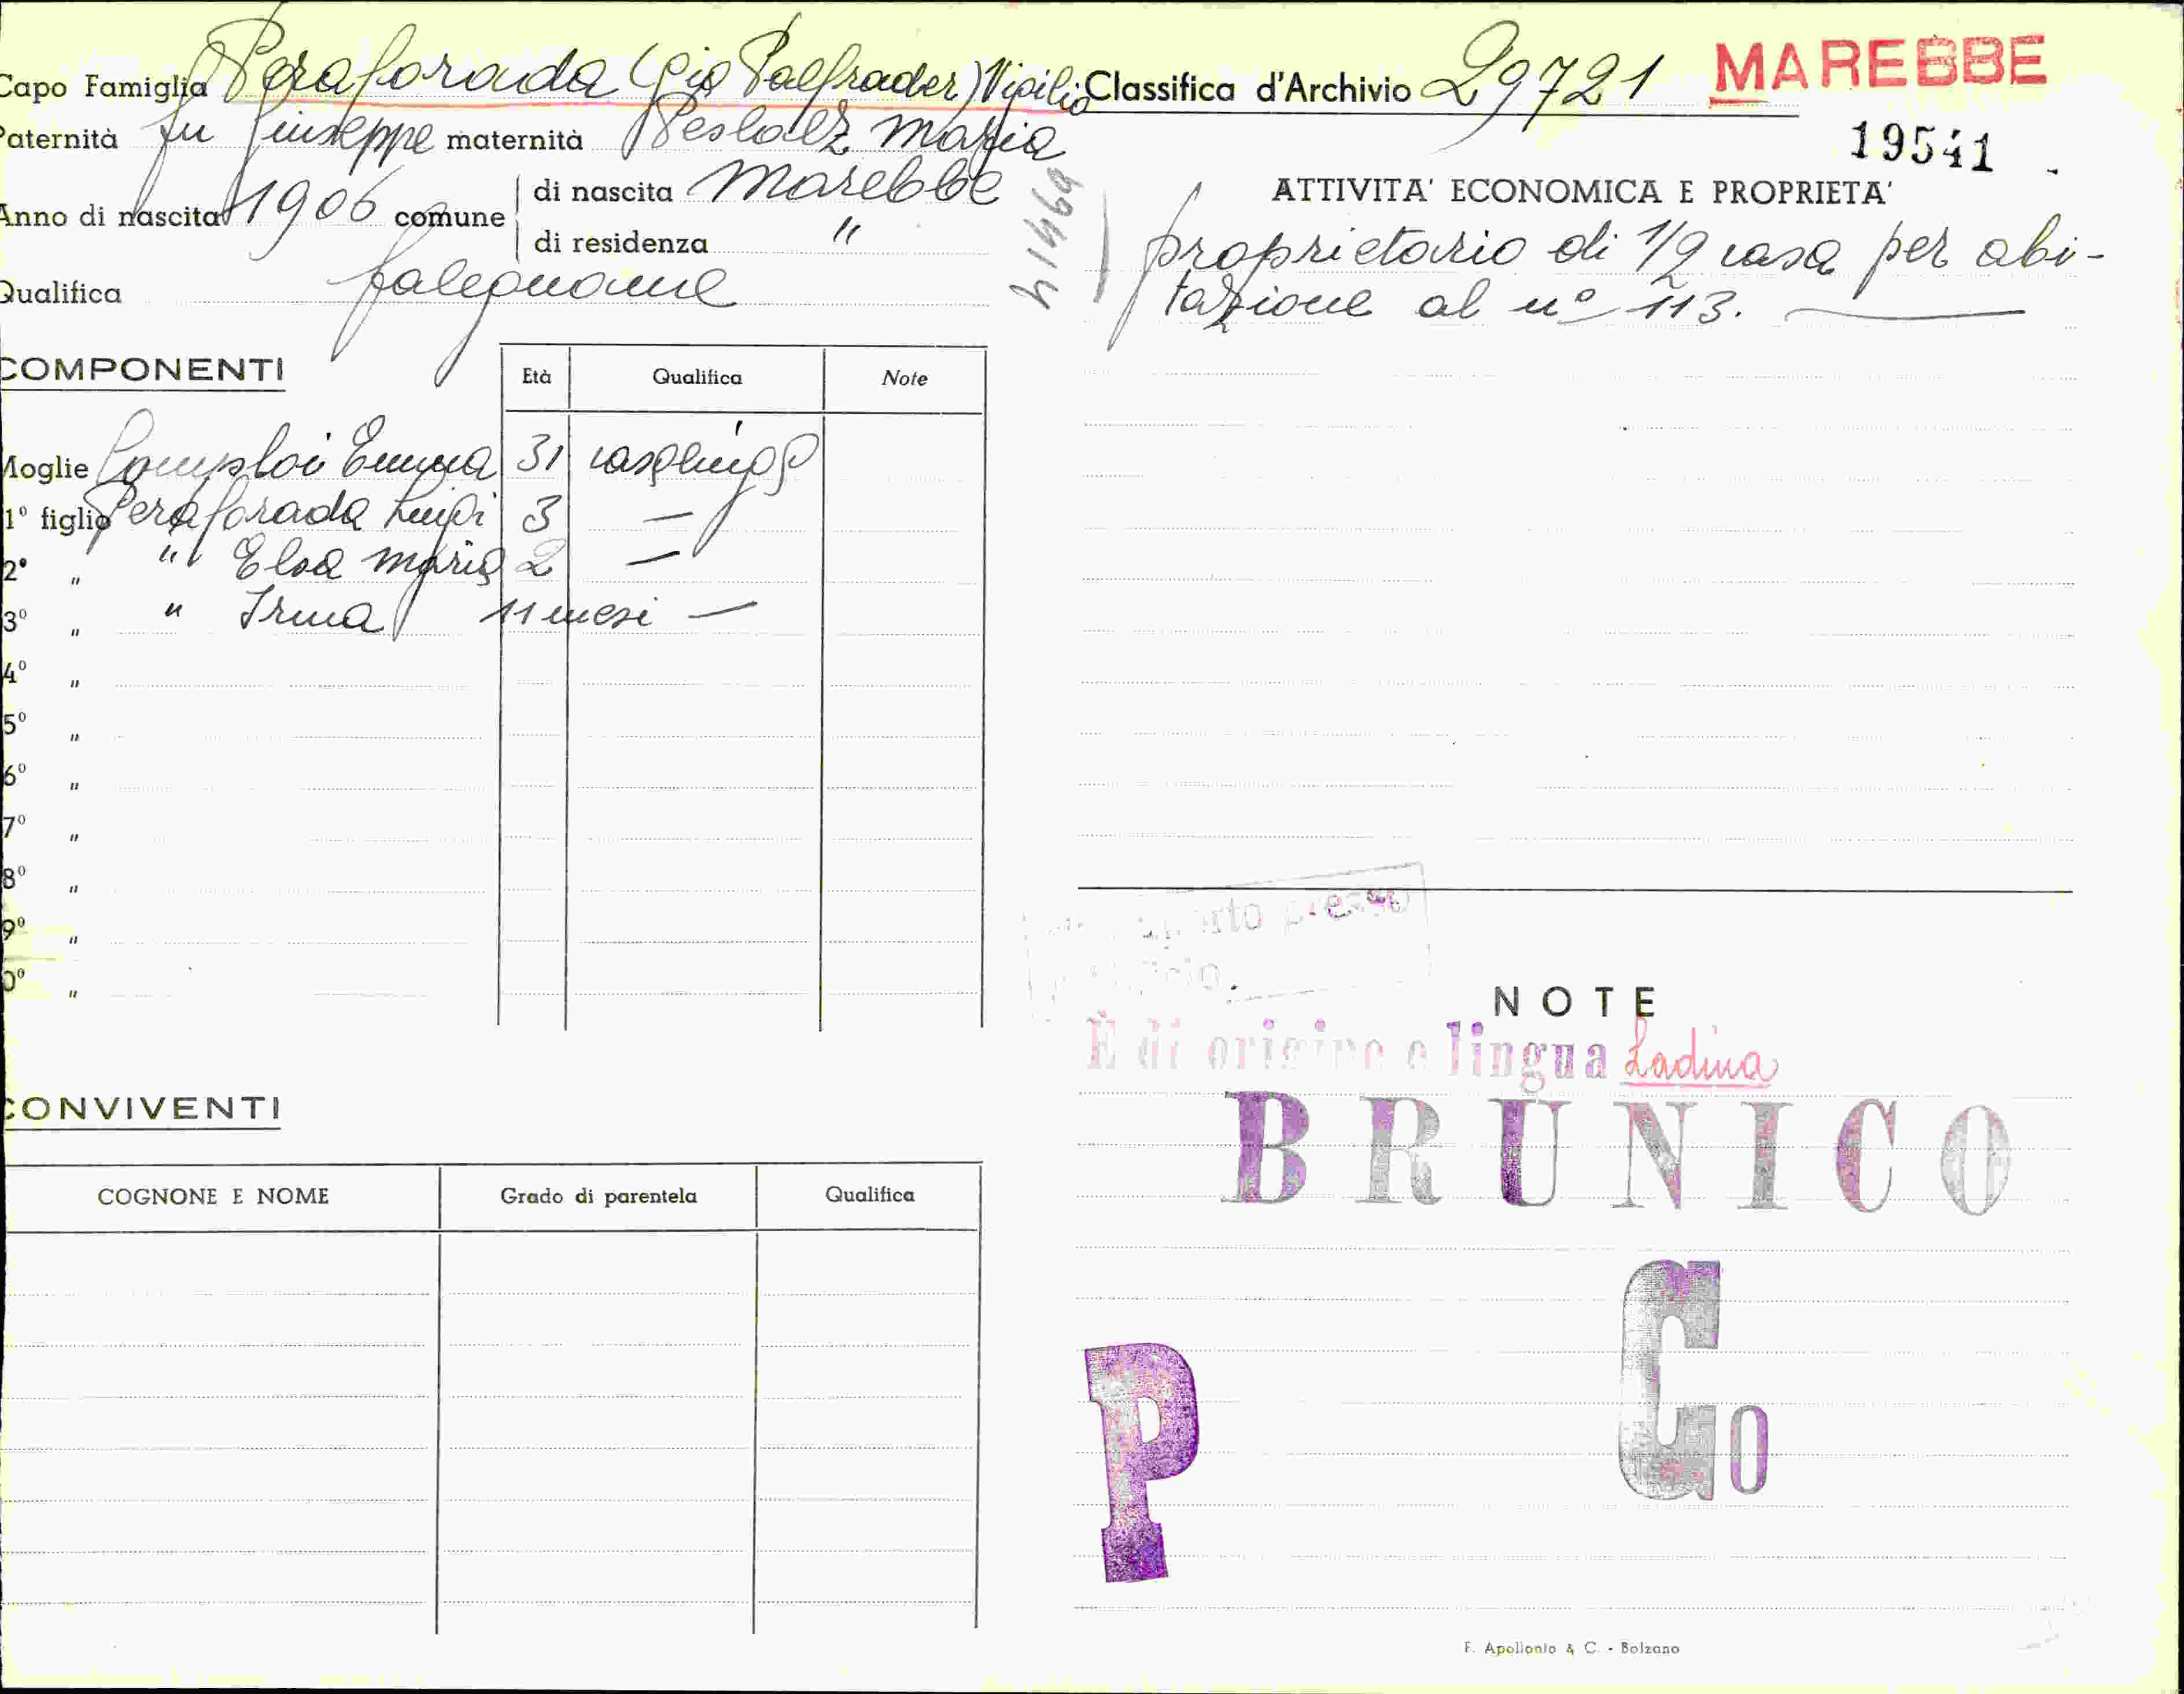 Capo Famiglia Peraforada (già Palfrader) Vigilio
Paternità fu Giuseppe maternità Peslalz Maria
Anno di nascita 1906 comune di nascita Marebbe
di residenza "
Qualifica falegname
COMPONENTI
Età Qualifica Note
Moglie Comploi Emma 31 casalinga
1° figlio Peraforada Luigi 3 —
2° " " Elsa Maria 2 —
3° " " Irma 11 mesi —
4° "
5° "
6° "
7° "
8° "
9° "
0° "
CONVIVENTI
COGNONE E NOME Grado di parentela Qualifica
Classifica d'Archivio 29721 MAREBBE
19541
ATTIVITA' ECONOMICA E PROPRIETA'
proprietario di 1/2 casa per abi-
tazione al n° 113.
NOTE
È di origine e lingua Ladina
BRUNICO
Go
P
F. Apollonio & C. - Bolzano